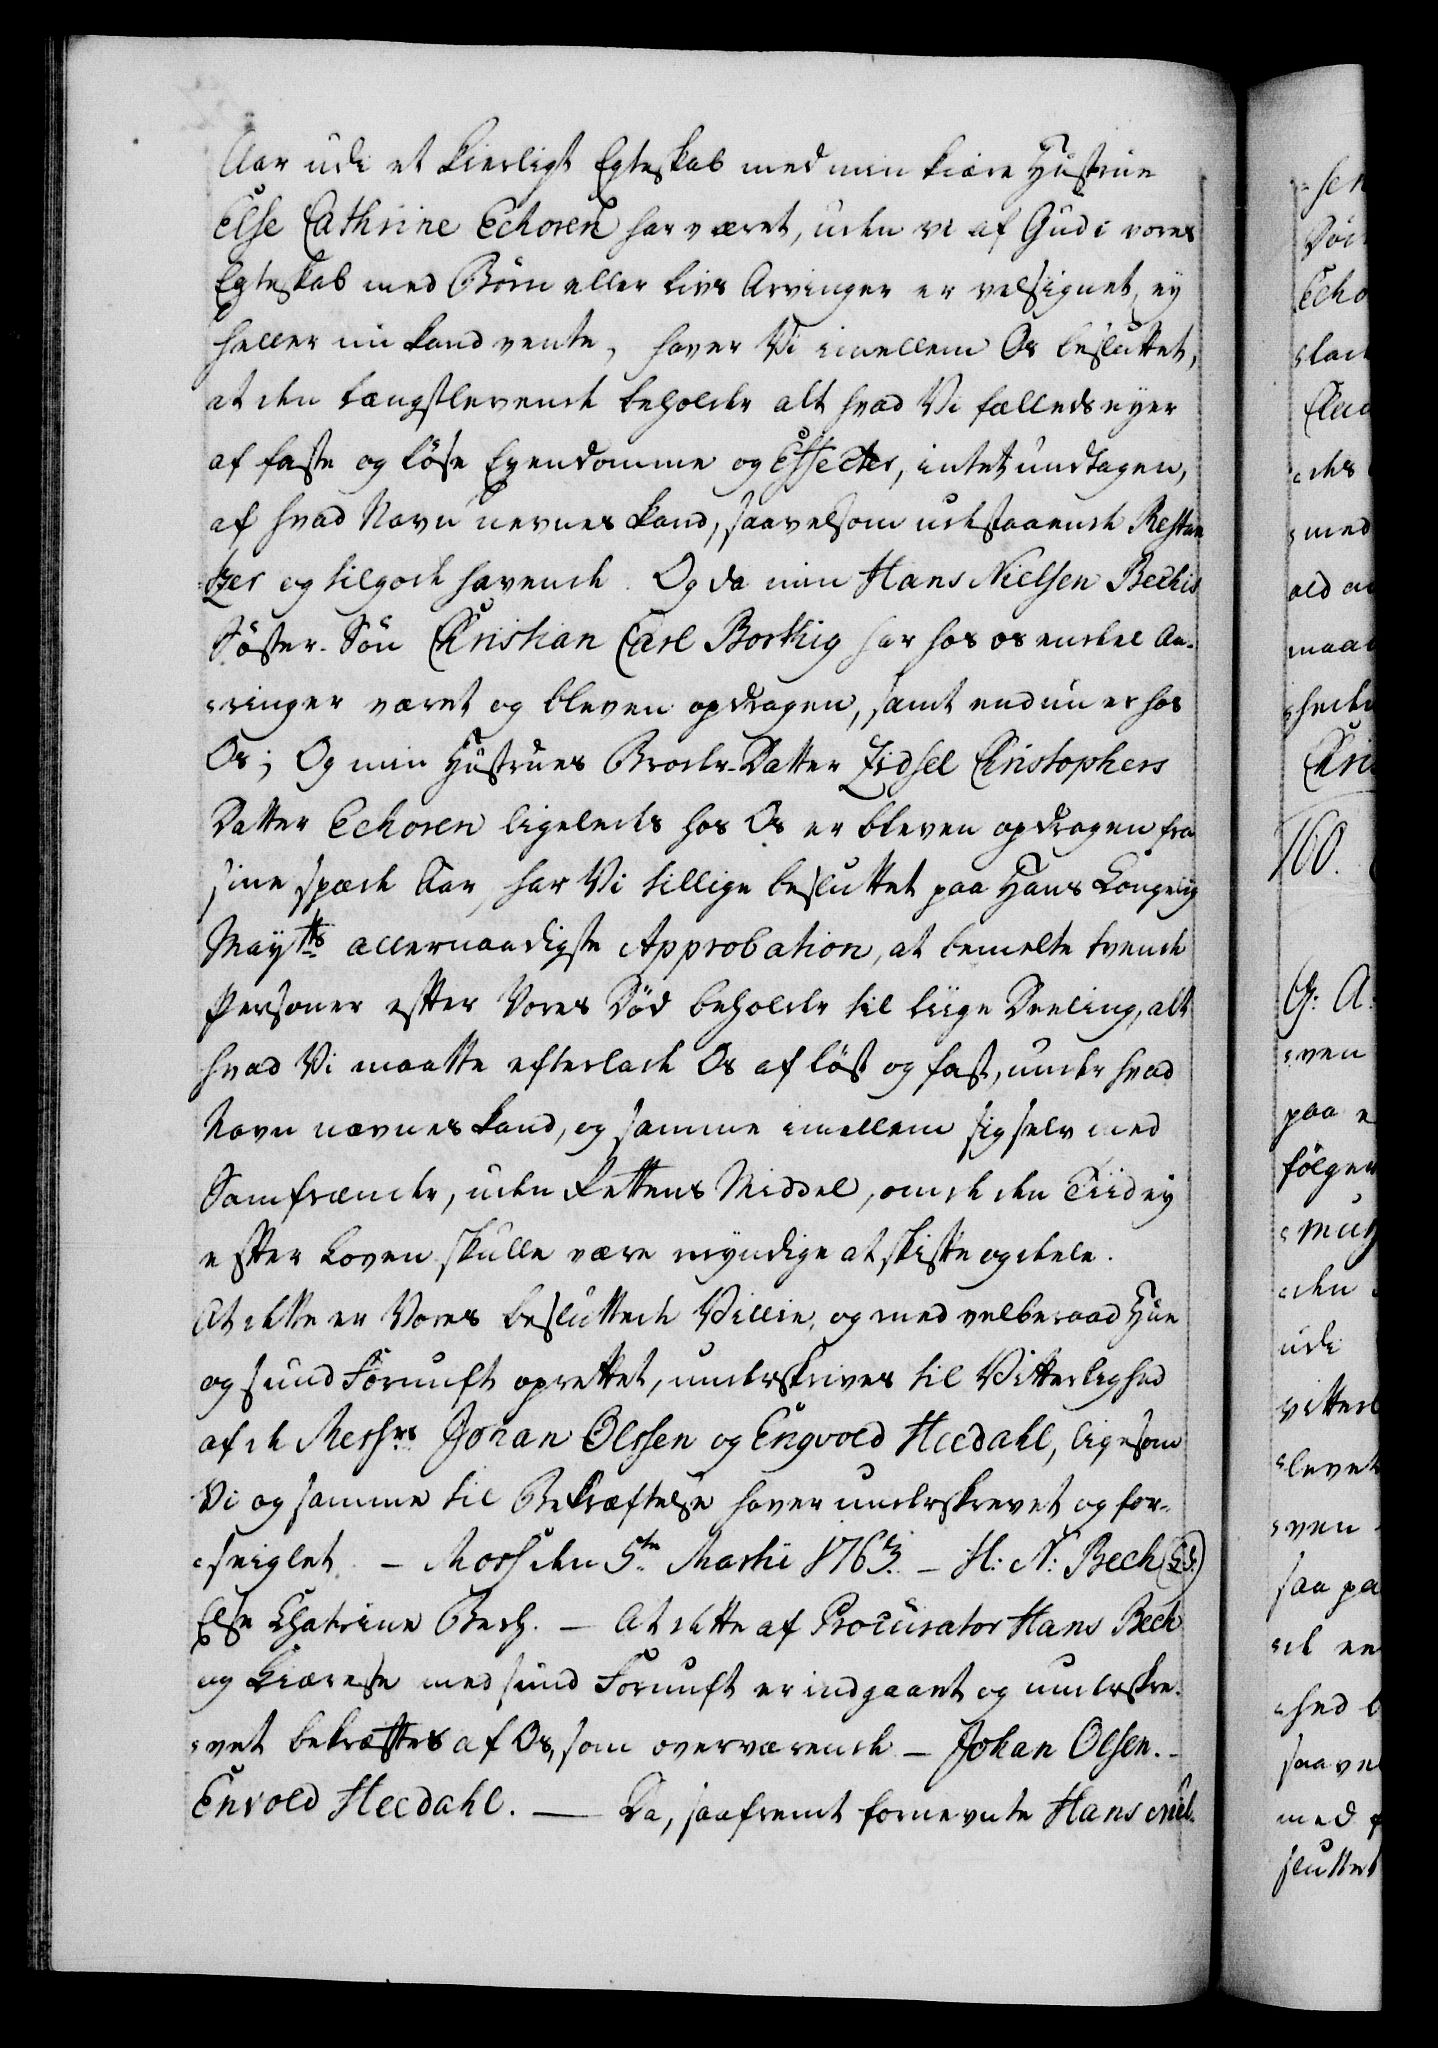 Aar udi et kierligt Egteskab med min kiære Hustrue
Else Cathrine Echoren har været, uden vi af Gud i vores
Egteskab med Børn eller livs Arvinger er velsignet, ey
heller nu kand vente, haver Vi imellem Os besluttet,
at den længstlevende beholder alt hvad Vi fælleds eyer
af faste og løse Eyendomme og Effecter, intet undtagen,
af hvad Navn nevnes kand, saavelsom udestaaende Restan
-tzer og tilgode havende. Og da min Hans Nielsen Bechis
Søster-Søn Christian Carl Borthig har hos os endeel Aa-
-ringer været og bleven opdragen, samt endnu er hos
Os; Og min Hustrues Broder-Datter Zidsel Christophers
Datter Echoren ligeleedes hos Os er bleven opdragen fra
sine spæde Aar, har Vi tillige besluttet paa Hans Kongelig
Mayts allernaadigste Approbation, at bemelte tvende
Personer efter Vores Død beholder til liige Deeling, alt
hvad Vi maatte efterlade Os af løst og fast, under hvad
Navn nævnes kand, og samme imellem sig selv med
Samfrænder, uden Rettens Middel, om de den Tiid ey
efter Loven skulle være myndige at skifte og dele.
At dette er Vores besluttede Villie, og med velberaad Hue
og sund Fornuft oprettet, underskrives til Vitterlighed
af de Messrs Johan Olssen og Engvold Heedahl, ligesom
Vi og samme til Bekræftelse haver underskrevet og for-
-seiglet. - Moss den 5te Martii 1763. - H: N: Bech (L.S.)
Else Chatrine Bech. - At dette af Procurator Hans Bech
og Kiæreste med sund Fornuft er indgaaet og underskre-
-vet bekræftes af Os, som overværende - Johan Olsen. -
Envold Heedahl. - Da, saafremt fornevnte Hans Niel-
sen
Echo
med
ald
maa
160.
G: A:
-ven
paa
følger
-den
udi
-levet
-ven
saa pa
med
sluttet